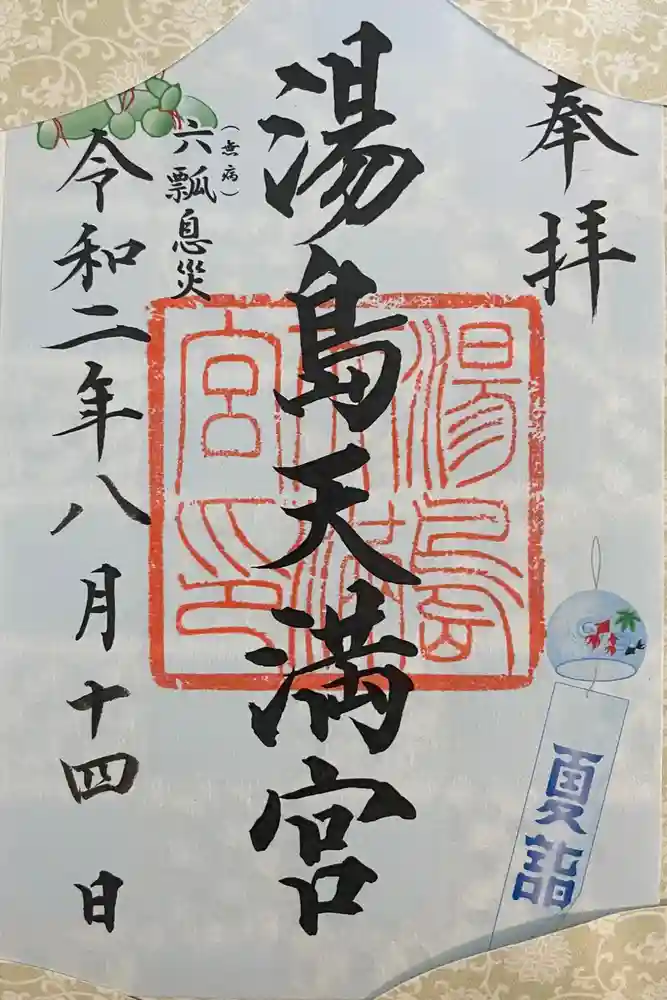 奉拝
湯島天満宮
(無病)
六瓢息災
令和二年八月十四日
湯島天満宮印
夏詣